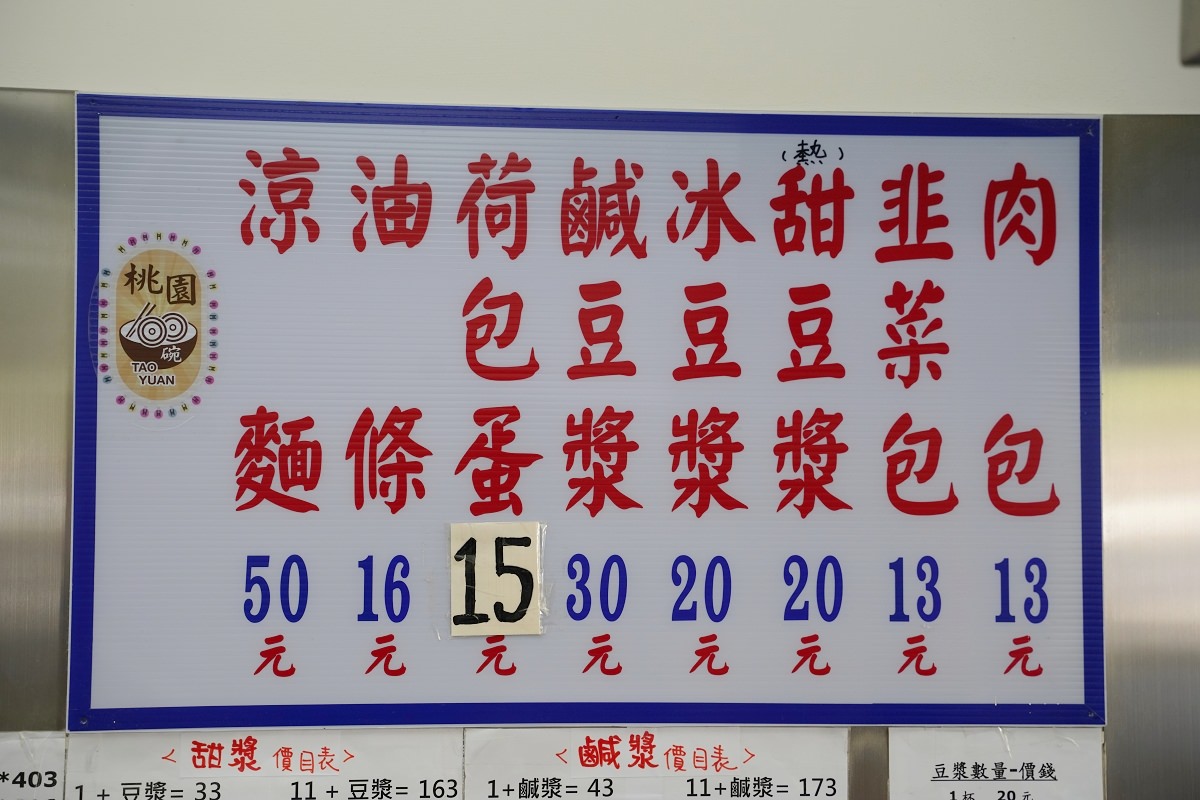 肉包 13元
韭菜包 13元
(熱)甜豆漿 20元
冰豆漿 20元
鹹豆漿 30元
荷包蛋 15元
油條 16元
涼麵 50元
桃園
碗
TAO
YUAN
*403
<甜漿 價目表>
1 + 豆漿= 33
11 + 豆漿= 163
<鹹漿 價目表>
1+鹹漿= 43
11+鹹漿= 173
豆漿數量-價錢
1杯 20元